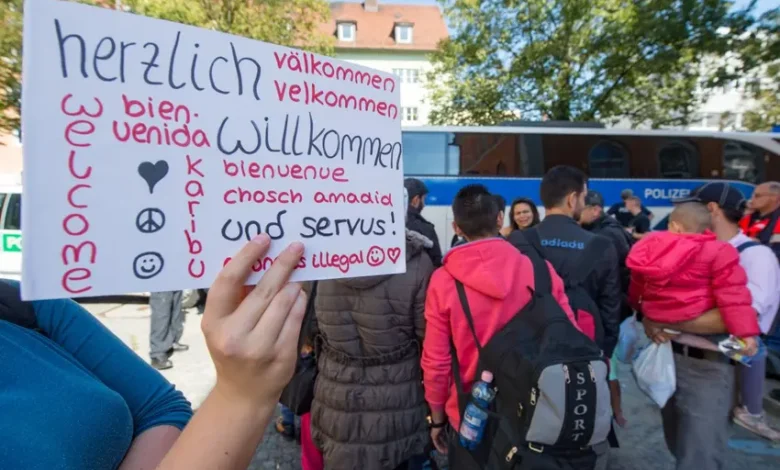 herzlich
välkommen
velkommen
welcome
bien.
venida
willkommen
Karibu
bienvenue
chosch amadid
und servus!
is illegal
POLIZEI
adidas
SPORT